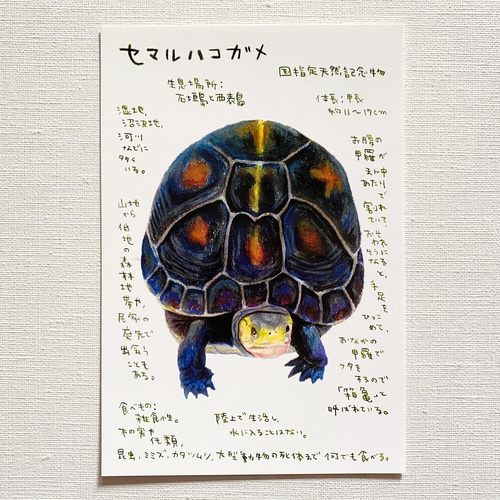 セマルハコガメ
国指定天然記念物
生息場所:
石垣島と西表島
体長:甲長
約11〜17cm
湿地、
沼沢地、
河川
などに
多く
いる。
山地
から
低
地
の
森
林
地
帯や、
民家の
庭先で
出会う
ことも
ある。
お腹の
甲羅が
まん中
あたり
で
割れ
ていて、
おそ
われ
そうに
なる
と、
手足を
ひっ
こ
めて、
おなかの
甲羅で
フタを
するので
「箱亀」と
呼ばれている。
食べもの:
雑食性。
木の実や
花類、
昆虫、ミミズ、カタツムリ、大型動物の死体まで何でも食べる。
陸上で生活し、
水に入ることはない。